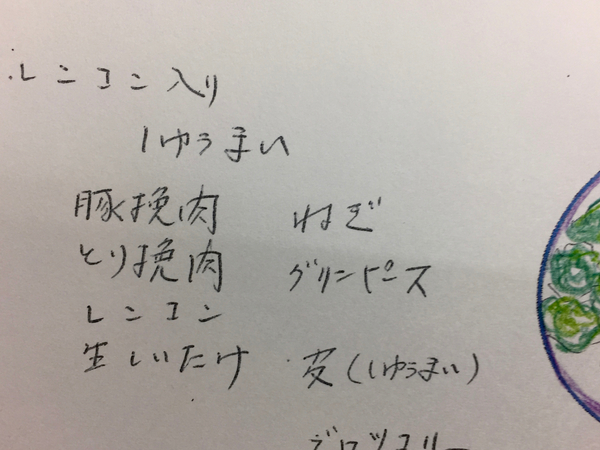 ・レンコン入り
しゅうまい
豚挽肉
とり挽肉
レンコン
生しいたけ
ねぎ
グリンピース
・皮(しゅうまい)
ブロッコリー